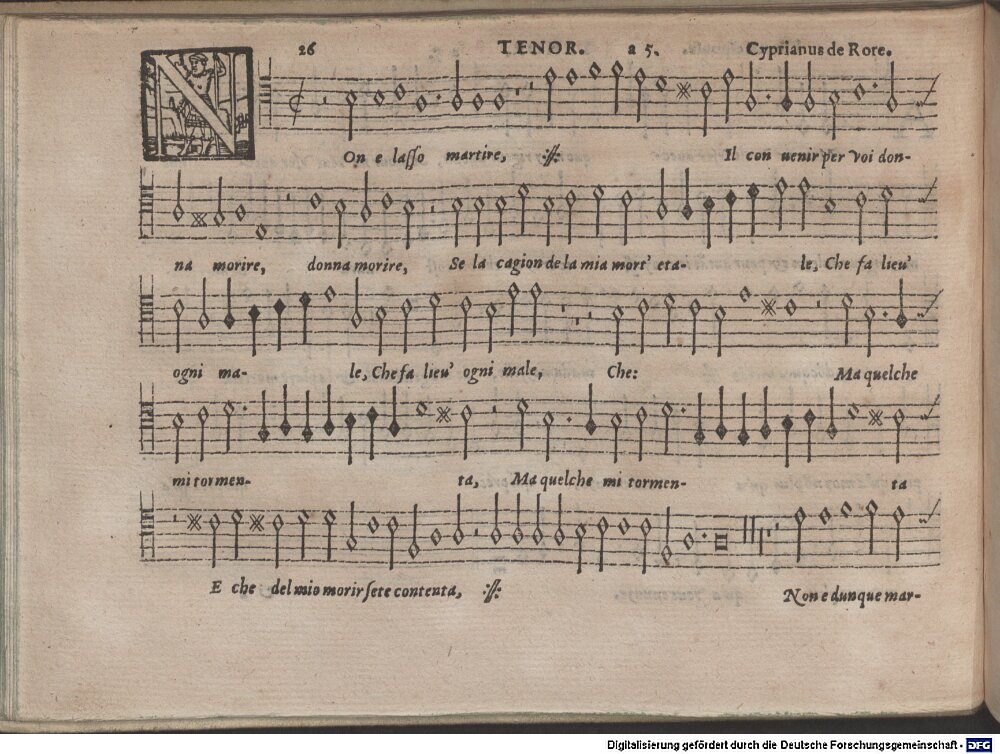 26 TENOR. a 5. Cyprianus de Rore.
NOn e lasso martire, :||: Il con uenir per voi don-
na morire, donna morire, Se la cagion de la mia mort' e ta- le, Che fa lieu'
ogni ma- le, Che fa lieu' ogni male, Che: Ma quel che
mi tormen- ta, Ma quel che mi tormen- ta
E che del mio morir sete contenta, :||: Non e dunque mar-
Digitalisierung gefördert durch die Deutsche Forschungsgemeinschaft - DFG